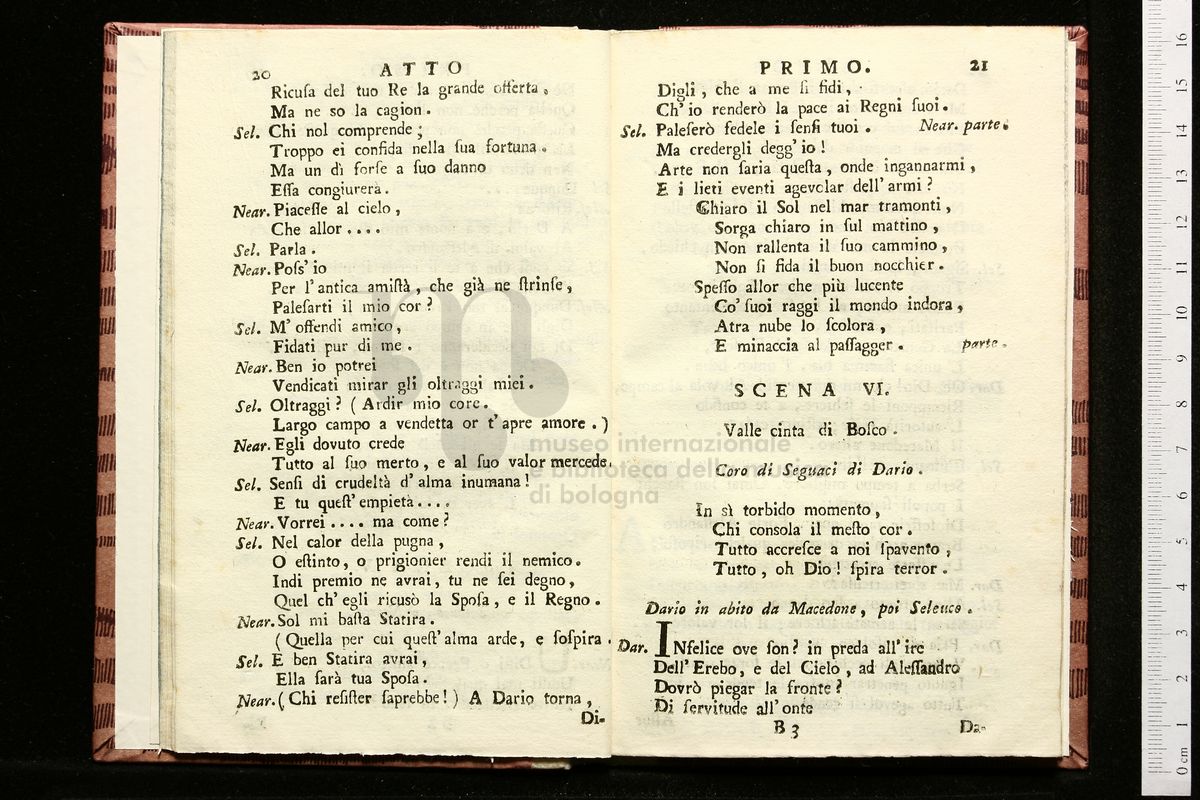 20 ATTO
Ricuſa del tuo Re la grande offerta,
Ma ne so la cagion.
Sel. Chi nol comprende;
Troppo ei confida nella ſua fortuna.
Ma un dì forſe a ſuo danno
Eſſa congiurerà.
Near. Piaceſſe al cielo,
Che allor ....
Sel. Parla.
Near. Poſs' io
Per l'antica amiſtà, che già ne ſtrinſe,
Paleſarti il mio cor?
Sel. M' offendi amico,
Fidati pur di me.
Near. Ben io potrei
Vendicati mirar gli oltraggi miei.
Sel. Oltraggi? (Ardir mio core.
Largo campo a vendetta or t'apre amore.)
Near. Egli dovuto crede
Tutto al ſuo merto, e al ſuo valor mercede.
Sel. Senſi di crudeltà d'alma inumana!
E tu queſt'empietà....
Near. Vorrei .... ma come?
Sel. Nel calor della pugna,
O eſtinto, o prigionier rendi il nemico.
Indi premio ne avrai, tu ne ſei degno,
Quel ch'egli ricusò la Spoſa, e il Regno.
Near. Sol mi baſta Statira.
(Quella per cui queſt'alma arde, e ſoſpira.
Sel. E ben Statira avrai,
Ella ſarà tua Spoſa.
Near. (Chi reſiſter ſaprebbe!) A Dario torna,
Di-
PRIMO. 21
Digli, che a me ſi fidi,
Ch'io renderò la pace ai Regni ſuoi.
Sel. Paleſerò fedele i ſenſi tuoi. Near. parte.
Ma credergli degg'io!
Arte non ſaria queſta, onde ingannarmi,
E i lieti eventi agevolar dell'armi?
Chiaro il Sol nel mar tramonti,
Sorga chiaro in ſul mattino,
Non rallenta il ſuo cammino,
Non ſi fida il buon nocchier.
Speſſo allor che più lucente
Co' ſuoi raggi il mondo indora,
Atra nube lo ſcolora,
E minaccia al paſſagger. parte.
SCENA VI.
Valle cinta di Boſco.
Coro di Seguaci di Dario.
In sì torbido momento,
Chi conſola il meſto cor.
Tutto accreſce a noi ſpavento,
Tutto, oh Dio! ſpira terror.
Dario in abito da Macedone, poi Seleuco.
Dar. INfelice ove ſon? in preda all'ire
Dell'Erebo, e del Cielo, ad Aleſſandro
Dovrò piegar la fronte?
Di ſervitude all'onte
B 3 Da-
museo internazionale
e biblioteca della musica
di bologna
0 cm 1 2 3 4 5 6 7 8 9 10 11 12 13 14 15 16